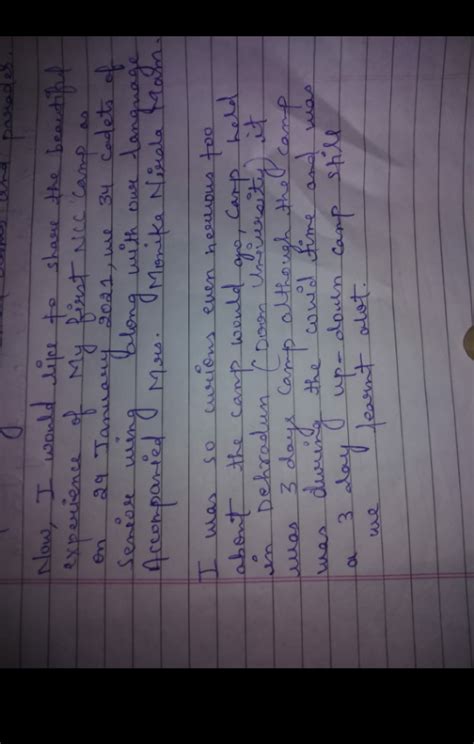 and parades.
Now, I would like to share the beautiful
experience of My first NCC camp as
on 29 January 2021, we 34 cadets of
Senior wing along with our language
Accompanied Mrs. Monika Mam.
I was so curious even nervous too
about the camp would go, camp held
in Dehradun (Doon University) it
was 3 days camp although the camp
was during the covid time and was
a 3 day up-down camp still
we learnt alot.